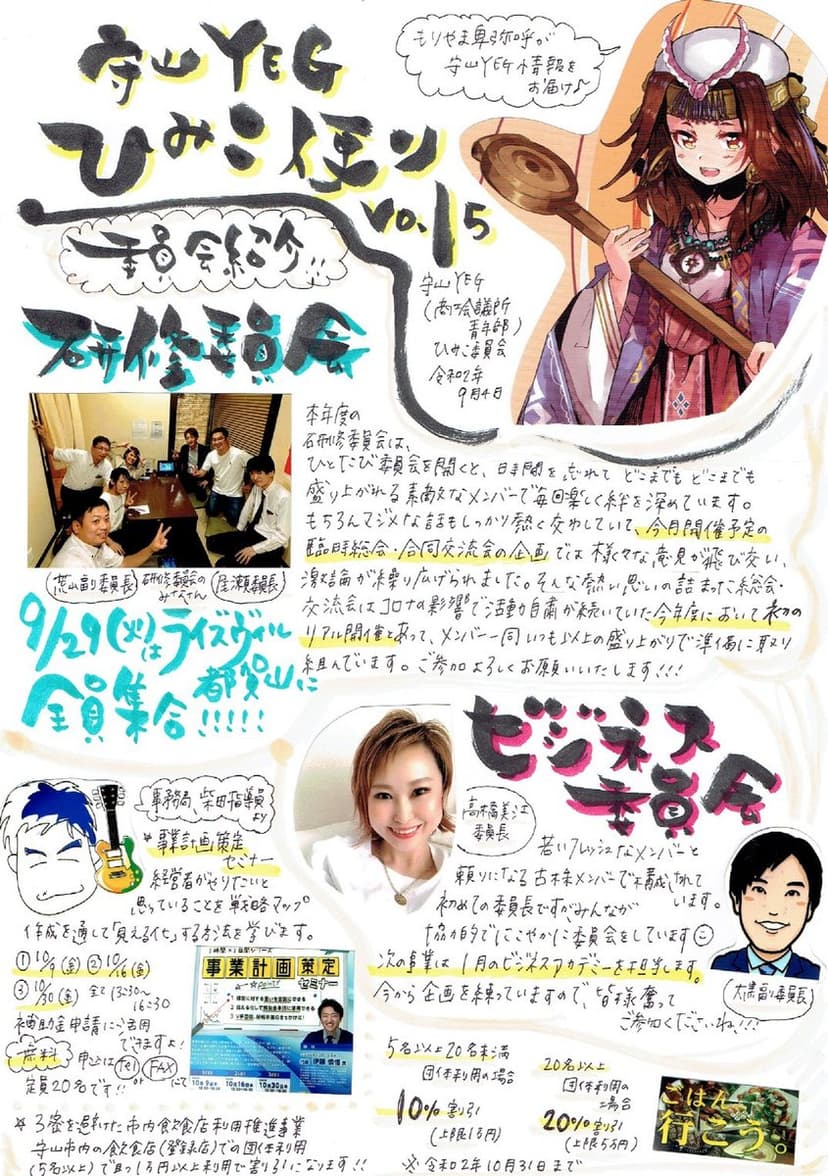 守山YEG
ひみこ便り
Vol.5
もりやま卑弥呼が
守山YEG情報を
お届け♪
守山YEG
(商工会議所
青年部)
ひみこ委員会
令和2年
9月4日
委員会紹介!!
研修委員会
本年度の
研修委員会は、
ひとたび委員会を開くと、時間を忘れて どこまでも どこまでも
盛り上がれる素敵なメンバーで毎回楽しく絆を深めています。
もちろんマジメな話もしっかり熱く交わしていて、今月開催予定の
臨時総会・合同交流会の企画では様々な意見が飛び交い、
激論が繰り広げられました。そんな熱い思いの詰まった総会・
交流会はコロナの影響で活動自粛が続いていた今年度において初の
リアル開催とあって、メンバー一同いつも以上の盛り上がりで準備に取り
組んでいます。ご参加よろしくお願いいたします!!!
荒山副委員長
研修委員会の
みなさん
尾瀬委員長
9/29(火)は
ライズヴィル
都賀山に
全員集合!!!!!
ビジネス
委員会
高橋美江
委員長
若いフレッシュなメンバーと
頼りになる古株メンバーで構成されて
います。
初めての委員長ですがみんなが
協力的でにこやかに委員会をしています
次の事業は1月のビジネスアカデミーを担当します。
今から企画を練っていますので、皆様奮って
ご参加くださいね!!!
大黒副委員長
事務局 柴田指導員
より
*事業計画策定
セミナー
経営者がやりたいと
思っていることを戦略マップ
作成を通して「見える化」する方法を学びます。
①10/9(金) ②10/16(金)
③10/30(金) 全て13:30〜
16:30
補助金申請にご活用
できますよ!
無料 申込は Tel or FAX にて
定員20名です!!
事業計画策定
セミナー
10月9日 10月16日 10月30日
*3密を避けた市内飲食店利用推進事業
守山市内の飲食店(登録店)での団体利用
(5名以上)で且つ1万円以上利用で割引になります!!
5名以上20名未満
団体利用の場合
10%割引
(上限1万円)
20名以上
団体利用の
場合
20%割引
(上限5万円)
※令和2年10月31日まで
ごはん
行こう。